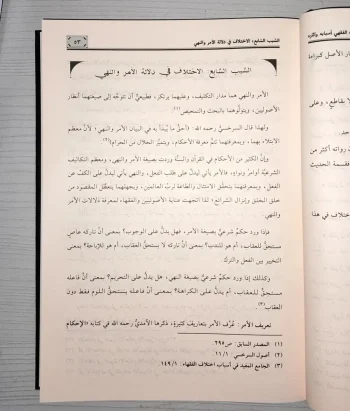 السبب السابع: الاختلاف في دلالة الأمر والنهي
٥٣
السبب السابع: الاختلاف في دلالة الأمر والنهي
الأمر والنهي هما مدار التكليف، وعليهما يرتكز، فطبيعيٌّ أن تتوجَّه إلى صيغتهما أنظار
الأصوليين، ويتولَّوهما بالبحث والتمحيص(١).
ولهذا قال السرخسي رحمه الله: (أحقُّ ما يُبْدَأُ به في البيان الأمر والنهي؛ لأنَّ معظم
الابتلاء بهما، وبمعرفتهما تتمُّ معرفة الأحكام، ويتميَّز الحلال من الحرام)(٢).
وإنَّ الكثير من الأحكام في القرآن والسنَّة وردت بصيغة الأمر والنهي، ومعظم التكاليف
الشرعيَّة أوامرُ ونواهٍ، فالأمر يأتي ليدلَّ على طلب الفعل، والنهي يأتي ليدلَّ على الكفِّ عن
الفعل، وبمعرفتهما يتحقَّق الامتثال والطاعة لربِّ العالمين، وبجهلهما يتعطَّل المقصود من
خلق الخلق وإنزال الشرائع؛ لذا اتجهت عناية الأصوليين والفقهاء لمعرفة دلالات الأمر
والنهي.
فإذا ورد حكمٌ شرعيٌّ بصيغة الأمر، فهل يدلُّ على الوجوب؟ بمعنى أنَّ تاركه عاصٍ
مستحقٌّ للعقاب، أم هو للندب؟ بمعنى أنَّ تاركه لا يستحقُّ العقاب، أم هو للإباحة؟ بمعنى
التخيير بين الفعل والترك.
وكذلك إذا ورد حكمٌ شرعيٌّ بصيغة النهي، هل يدلُّ على التحريم؟ بمعنى أنَّ فاعله
مستحقٌّ للعقاب، أم يدلُّ على الكراهة؟ بمعنى أنَّ فاعله يستحقُّ اللوم فقط دون
العقاب(٣).
تعريف الأمر: عُرِّف الأمر بتعاريف كثيرة، ذكرها الآمديُّ رحمه الله في كتابه «الإحكام
(١) المصدر السابق: ص٢٩٥.
(٢) أصول السرخسي: ١١/١.
(٣) الجامع المفيد في أسباب اختلاف الفقهاء: ١٤٩/١.
الفقهي أسبابه وآثاره